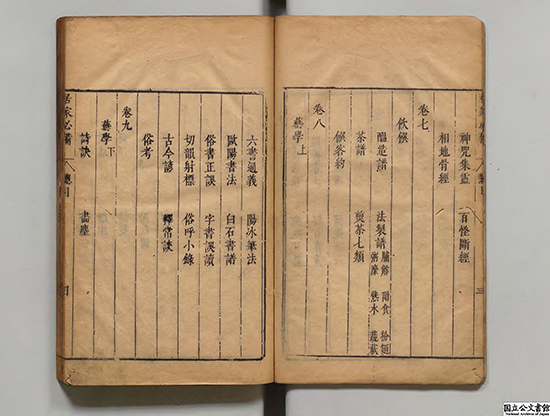 神咒集靈 百怪斷經
相地骨經
卷七
飲饌
醞造譜 法製譜 脯鮓 甜食 粉麵 粥糜 熟水 蔬蓏
茶譜 煎茶七類
饌客約
卷八
藝學上
三
六書通義 陽冰筆法
歐陽書法 白石書譜
俗書正誤 字書誤讀
切韻射標 俗呼小錄
古今諺 釋常談
俗考
卷九
藝學下
詩訣 書塵
居家必備 總目 四
国立公文書館
National Archives of Japan